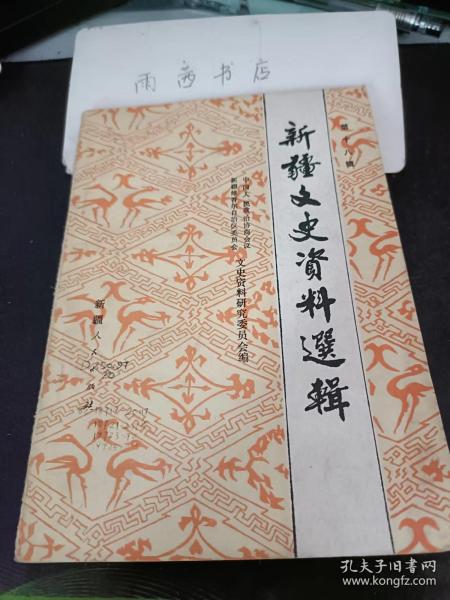 雨茜书店
第十八辑
新疆文史资料選輯
中国人民政治协商会议
新疆维吾尔自治区委员会
文史资料研究委员会编
新疆人民出版社
孔夫子旧书网
www.kongfz.com